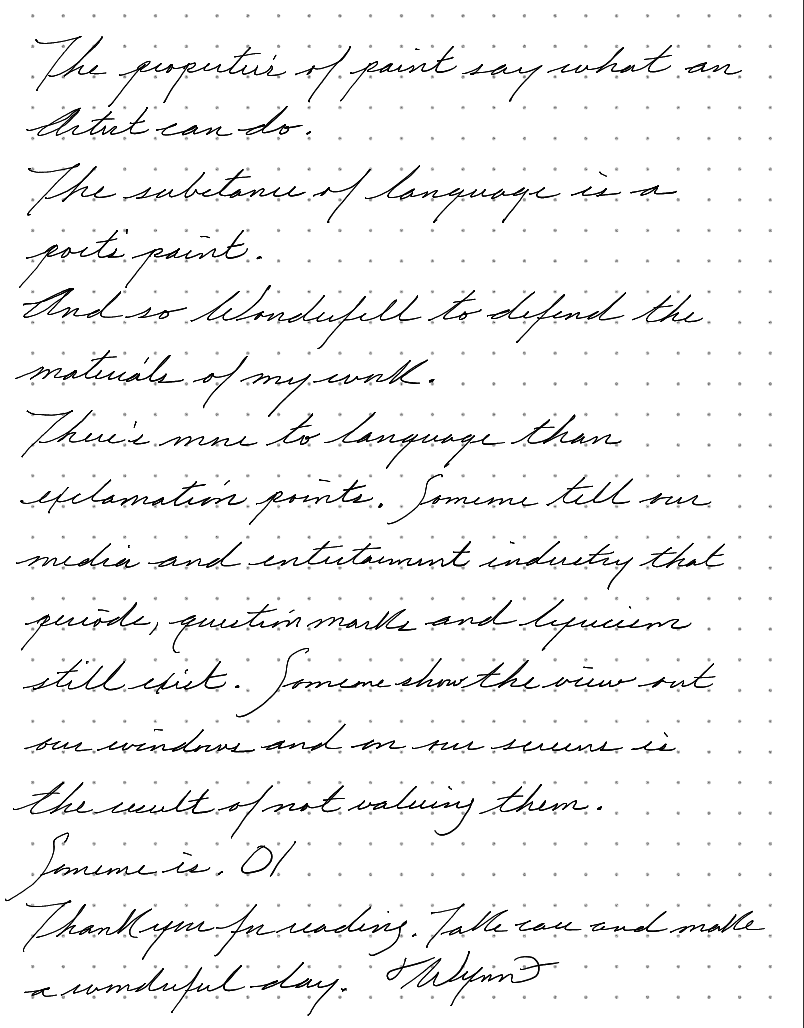 The properties of paint say what an
Artist can do.
The substance of language is a
poet's paint.
And so Wonderfell to defend the
materials of my work.
There's more to language than
exclamation points. Someone tell our
media and entertainment industry that
periods, question marks and lyricism
still exist. Someone show the view out
our windows and on our screens is
the result of not valuing them.
Someone is. 01
Thank you for reading. Take care and make
a wonderful day. Wynn